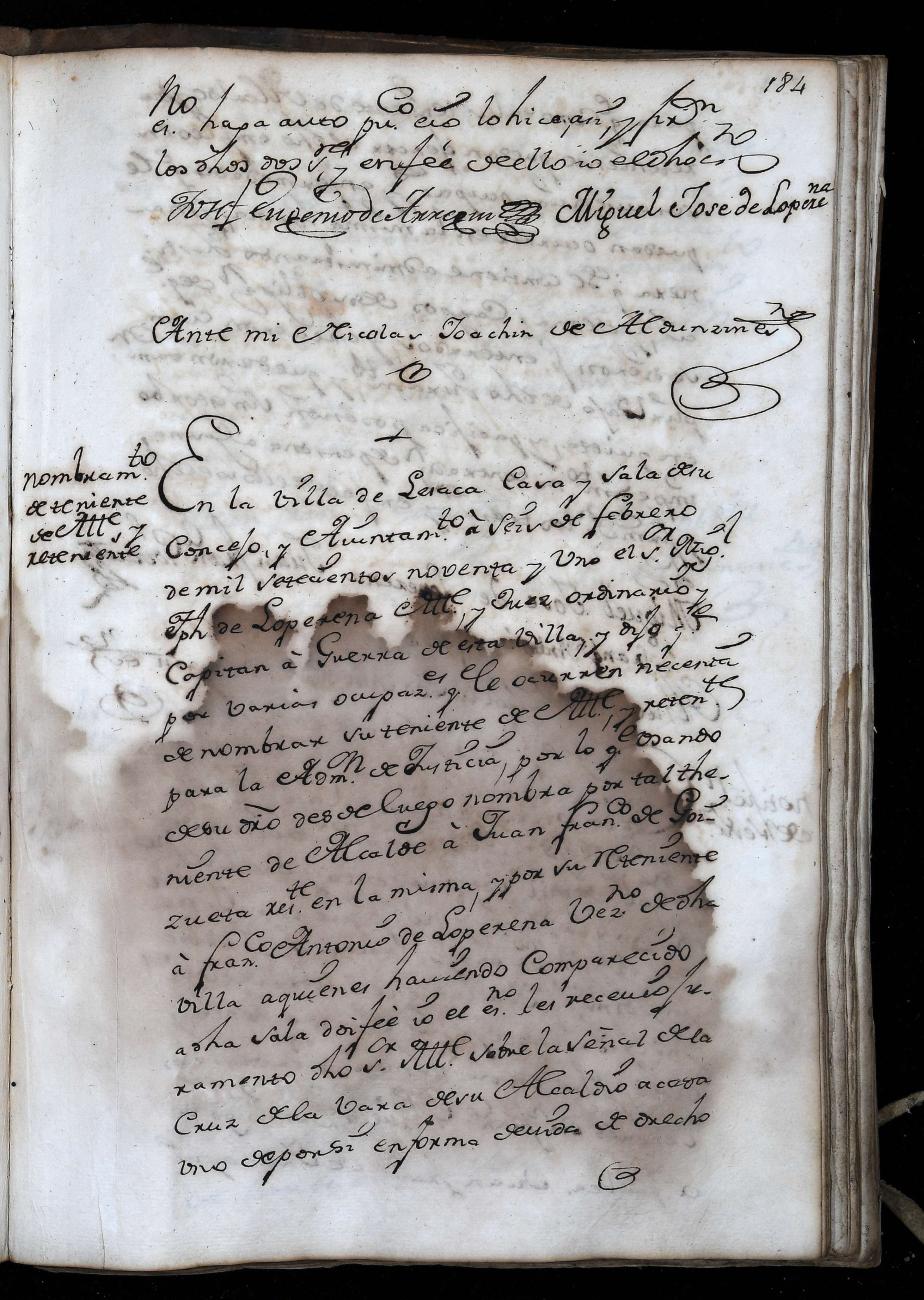 184
es.no haga auto pu.co e io lo hice asi, y firm.n
los dhos dos s.res y en feé de ello io el dho es.no
Josef Eugenio de Arregui Miguel Jose de Loperena
Ante mi Nicolas Joachin de Aldunzin es.no
nombram.to
de teniente
de Alll.e y
reteniente
En la Villa de Lesaca Casa y sala de su
Concejo, y Aiuntam.to à seis de febrero
de mil setecientos noventa y uno el s.or Mig.l
Jph. de Loperena Alll.e, y Juez ordinario, y
Capitan à Guerra de esta Villa, y dijo q.e
por varias ocupaz.es q. le ocurren necesita
de nombrar su teniente de Alll.e, y reten.te
para la Adm.on de Justicia, por lo q.e usando
de su dro desde luego nombra por tal the-
niente de Alcalde à Juan fran.co de Goi-
zueta res.te en la misma, y por su reteniente
à fran.co Antonio de Loperena Vez.no de dha
villa aquienes haviendo Comparecido
a dha sala doi feè io el es.no les recevio ju-
ramento dho s.or Alll.e sobre la señal de la
Cruz de la Vara de su Alcaldio a cada
uno de por si en forma devida de drecho